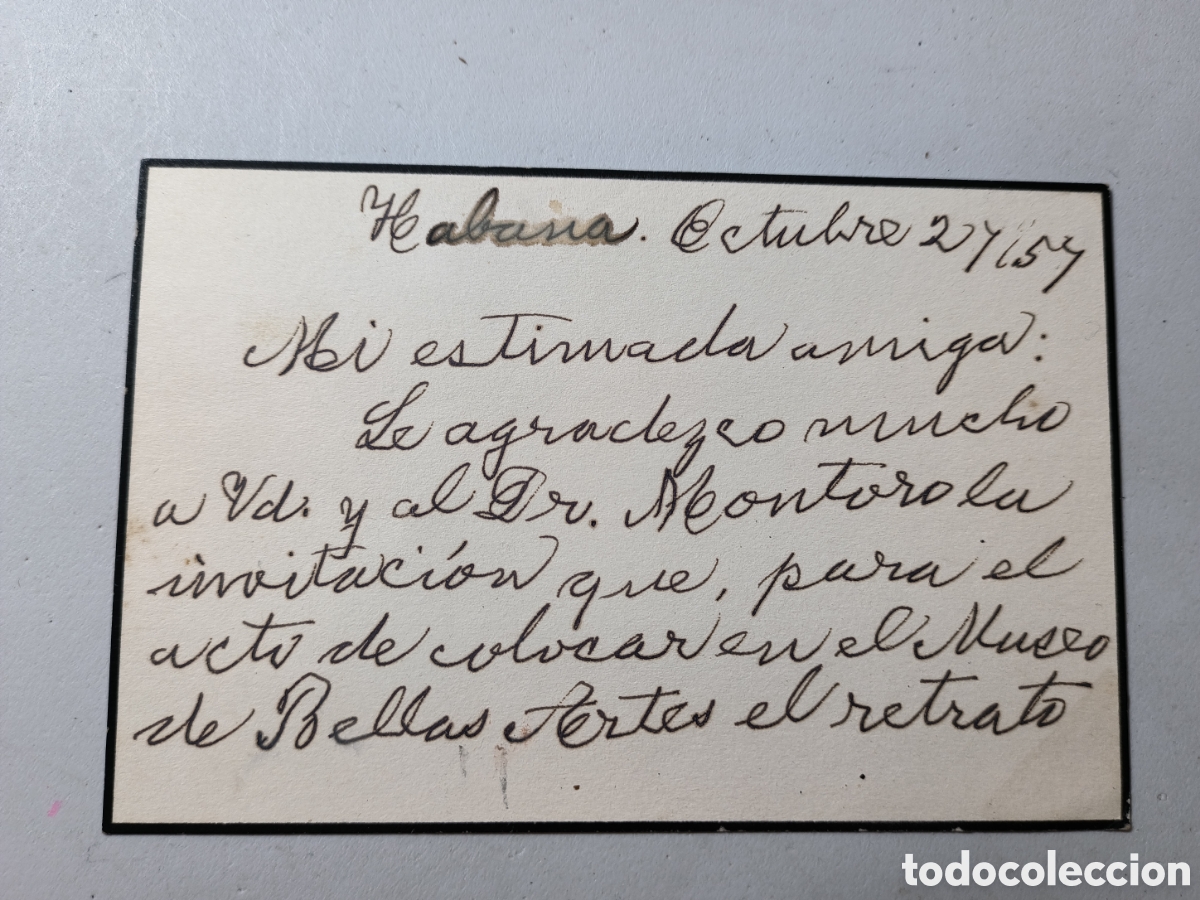 Habana. Octubre 27/57
Mi estimada amiga:
Le agradezco mucho
a Vd. y al Dr. Montoro la
invitación que, para el
acto de colocar en el Museo
de Bellas Artes el retrato
todocoleccion